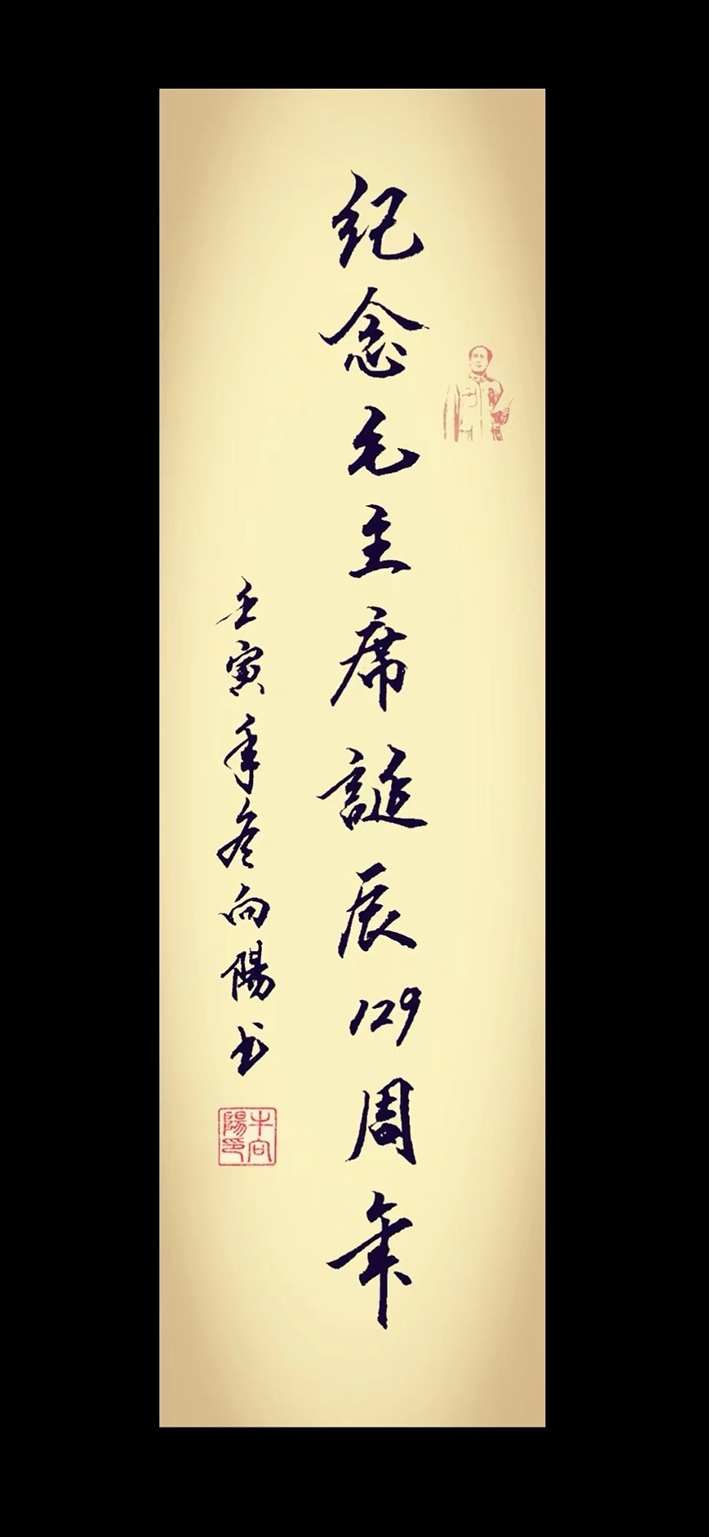 纪念毛主席誕辰129周年
壬寅年冬向陽书
牛向陽印